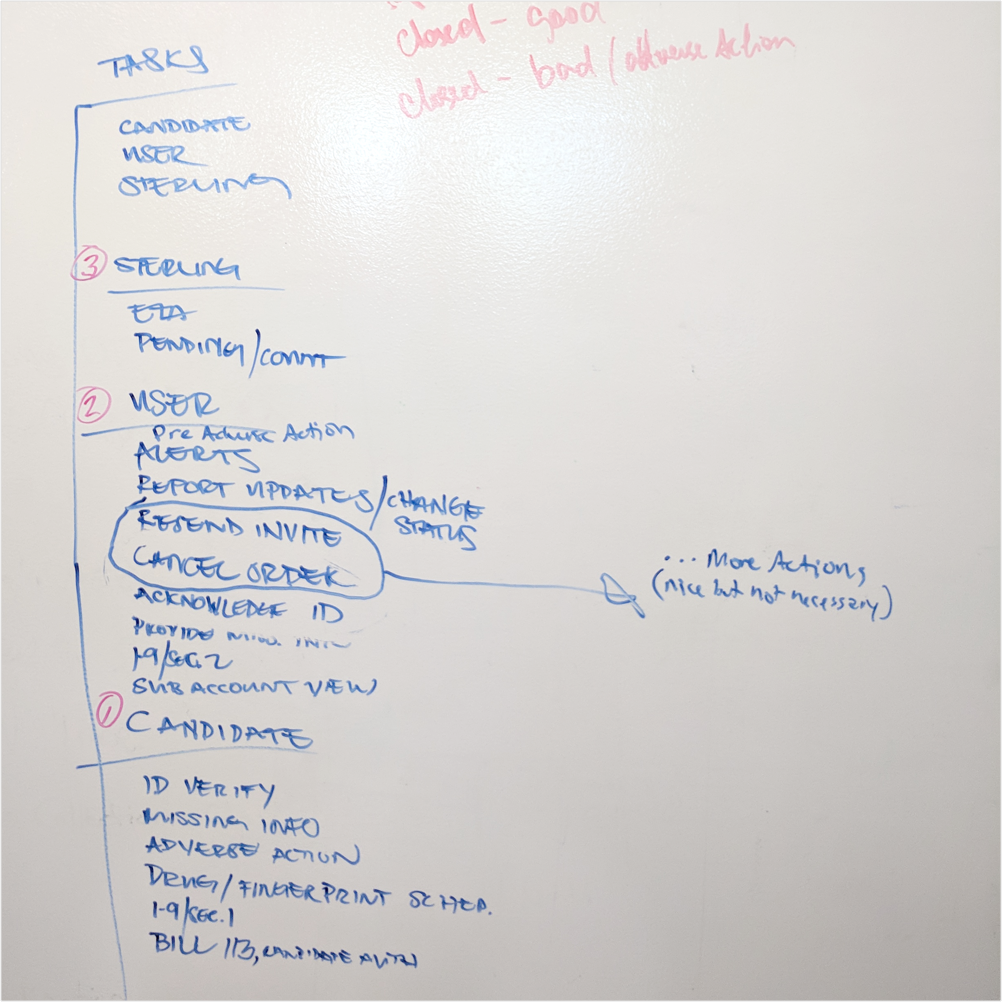 closed - good
closed - bad / adverse Action
TASKS
CANDIDATE
USER
STERLING
3 STERLING
ETA
PENDING/COMMT
2 USER
Pre Adverse Action
ALERTS
REPORT UPDATES/CHANGE STATUS
RESEND INVITE
CANCEL ORDER
... More Actions
(nice but not necessary)
ACKNOWLEDGE ID
PROVIDE
I-9/SEC.2
SUB ACCOUNT VIEW
1 CANDIDATE
ID VERIFY
MISSING INFO
ADVERSE ACTION
DRUG/FINGERPRINT SCHED.
I-9/SEC.1
BILL 113, CANDIDATE AUTH